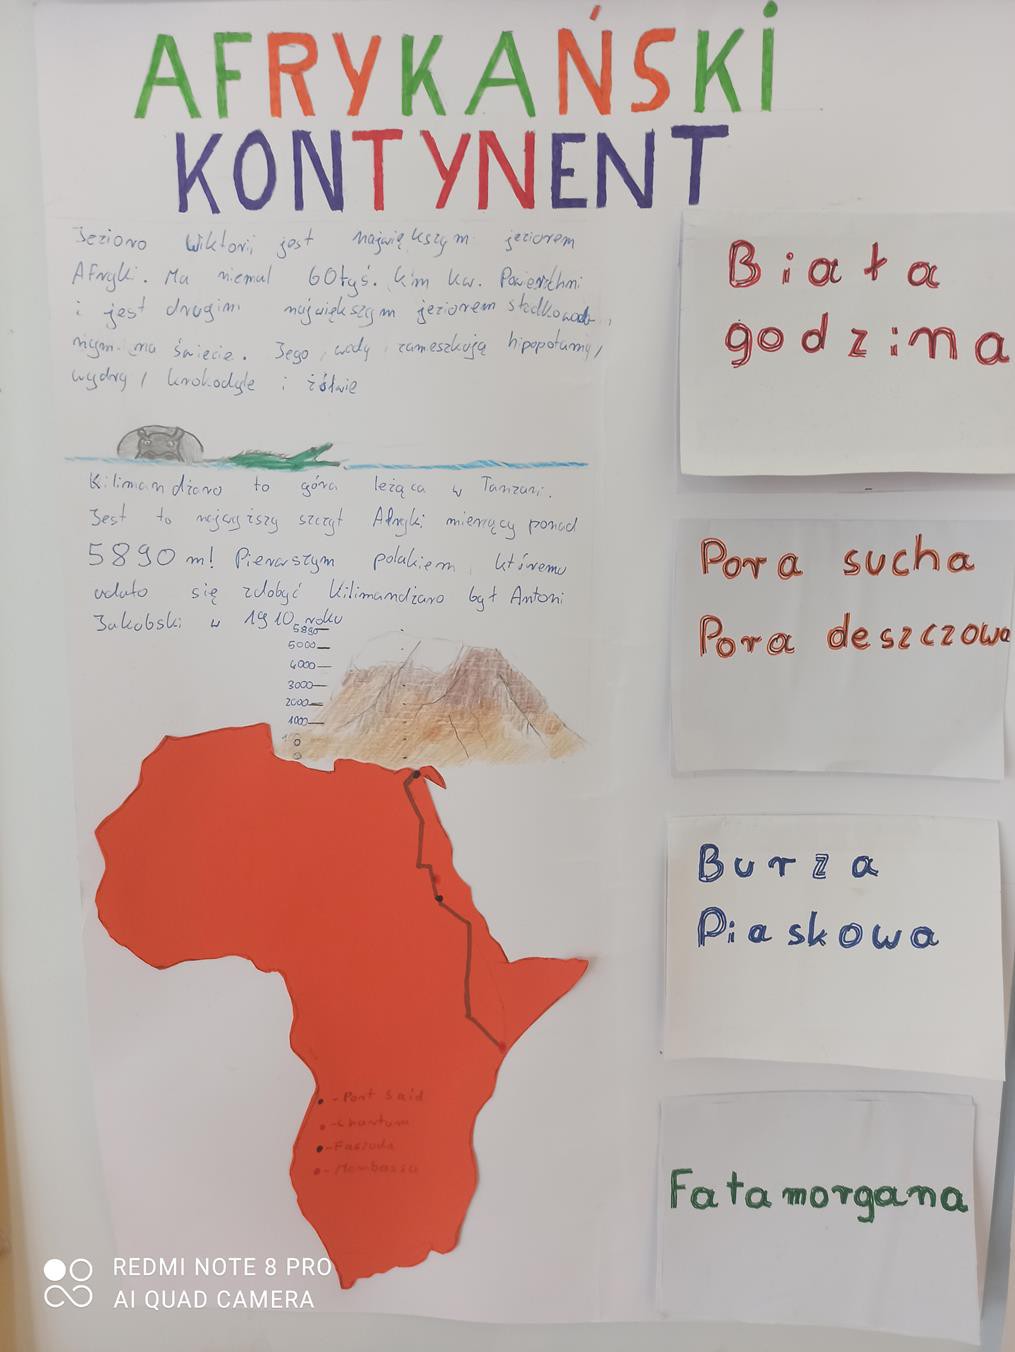 AFRYKAŃSKI
KONTYNENT
Jezioro Wiktorii jest największym jeziorem
Afryki. Ma niemal 60tyś. km kw. Powierzchni
i jest drugim największym jeziorem słodkowod-
nym na świecie. Jego wody zameszkują hipopotamy,
wydry, krokodyle i żółwie
Kilimandżaro to góra leżąca w Tanzani.
Jest to najwyższy szczyt Afryki mierzący ponad
5890 m! Pierwszym polakiem, któremu
udało się zdobyć Kilimandżaro był Antoni
Jakobski w 1910 roku
5890
5000
4000
3000
2000
1000
0
- Port Said
- Chartum
- Faszoda
- Mombassa
Biała
godzina
Pora sucha
Pora deszczowa
Burza
Piaskowa
Fatamorgana
REDMI NOTE 8 PRO
AI QUAD CAMERA